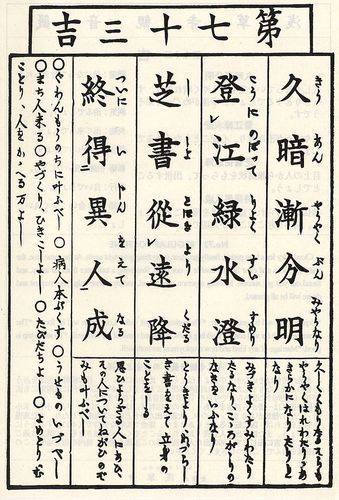 第七十三吉
きう あん やうやく ぶん みやうなり
久暗漸分明
こうにのぼつて りよく すい すめり
登レ江緑水澄
し しよ とほきより くだる
芝書從レ遠降
ついに い じん をえて なる
終得二異人成
久しくくもりたるそらも
やうやくはれわたりあ
きらかになりたりと
なり
みづきよくすみわたり
たるなり、こゝろがゝりの
なきをいふなり
とうきより、めづらし
き書をえて立身の
ことをしる
思ひよらざる人にあひ、
その人についてねがひのぞ
みも叶ふべし
○ぐわんもうのちに叶ふべし ○病人本ぷくす ○うせものいづべし
○まち人来る ○やづくり、ひきこしよし ○たびだちよし ○よめとり、む
ことり、人をかゝへる万よし